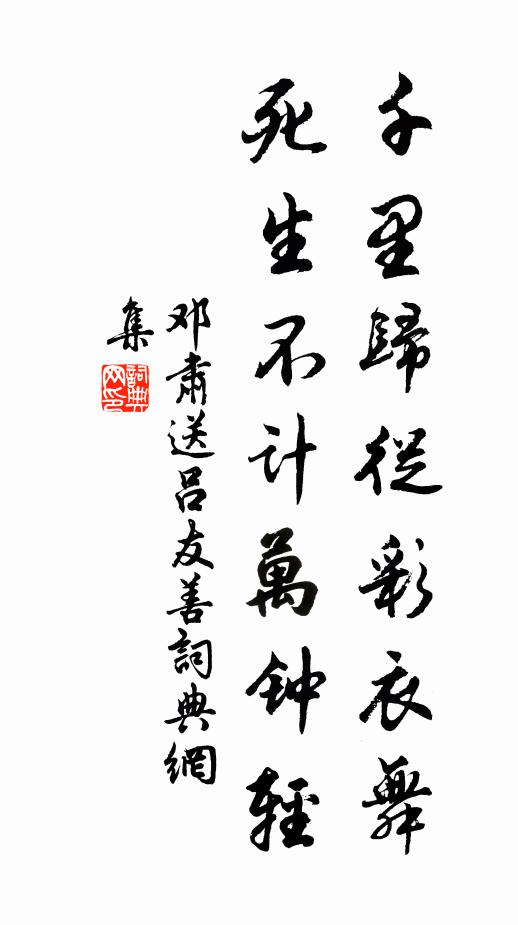 千里歸從彩衣舞
死生不计萬钟輕
邓肅送呂友善詞典網
集
詞典
网印